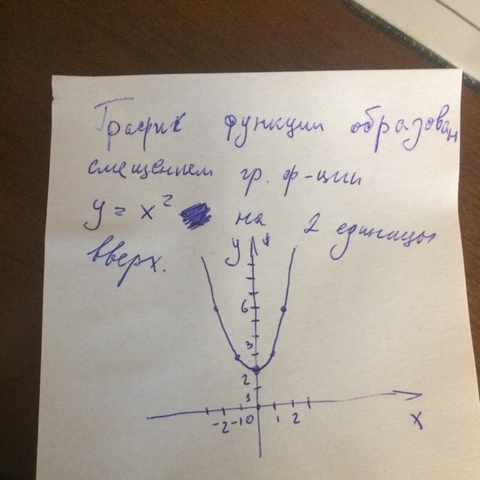 График функции образован
смещением гр. ф-ции
y = x² на 2 единицы
вверх.
y
6
3
2
1
-2 -1 0 1 2
x